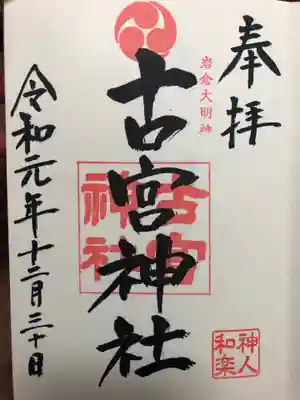 奉拝
岩倉大明神
古宮神社
古宮
神社
令和元年十二月三十日
神人
和楽